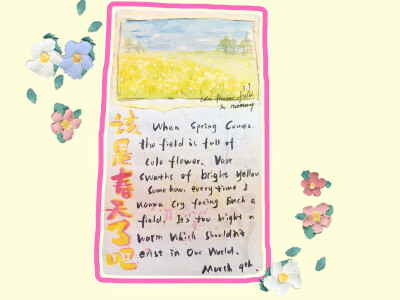 Cole flower field
in memory
该是春天了吧
When Spring Comes.
the field is full of
Cole flower. Vast
swaths of bright yellow
Somehow, every time I
wanna Cry facing Such a
field. It's too bright n
warm which shouldn't
exist in Our World.
March 9th.